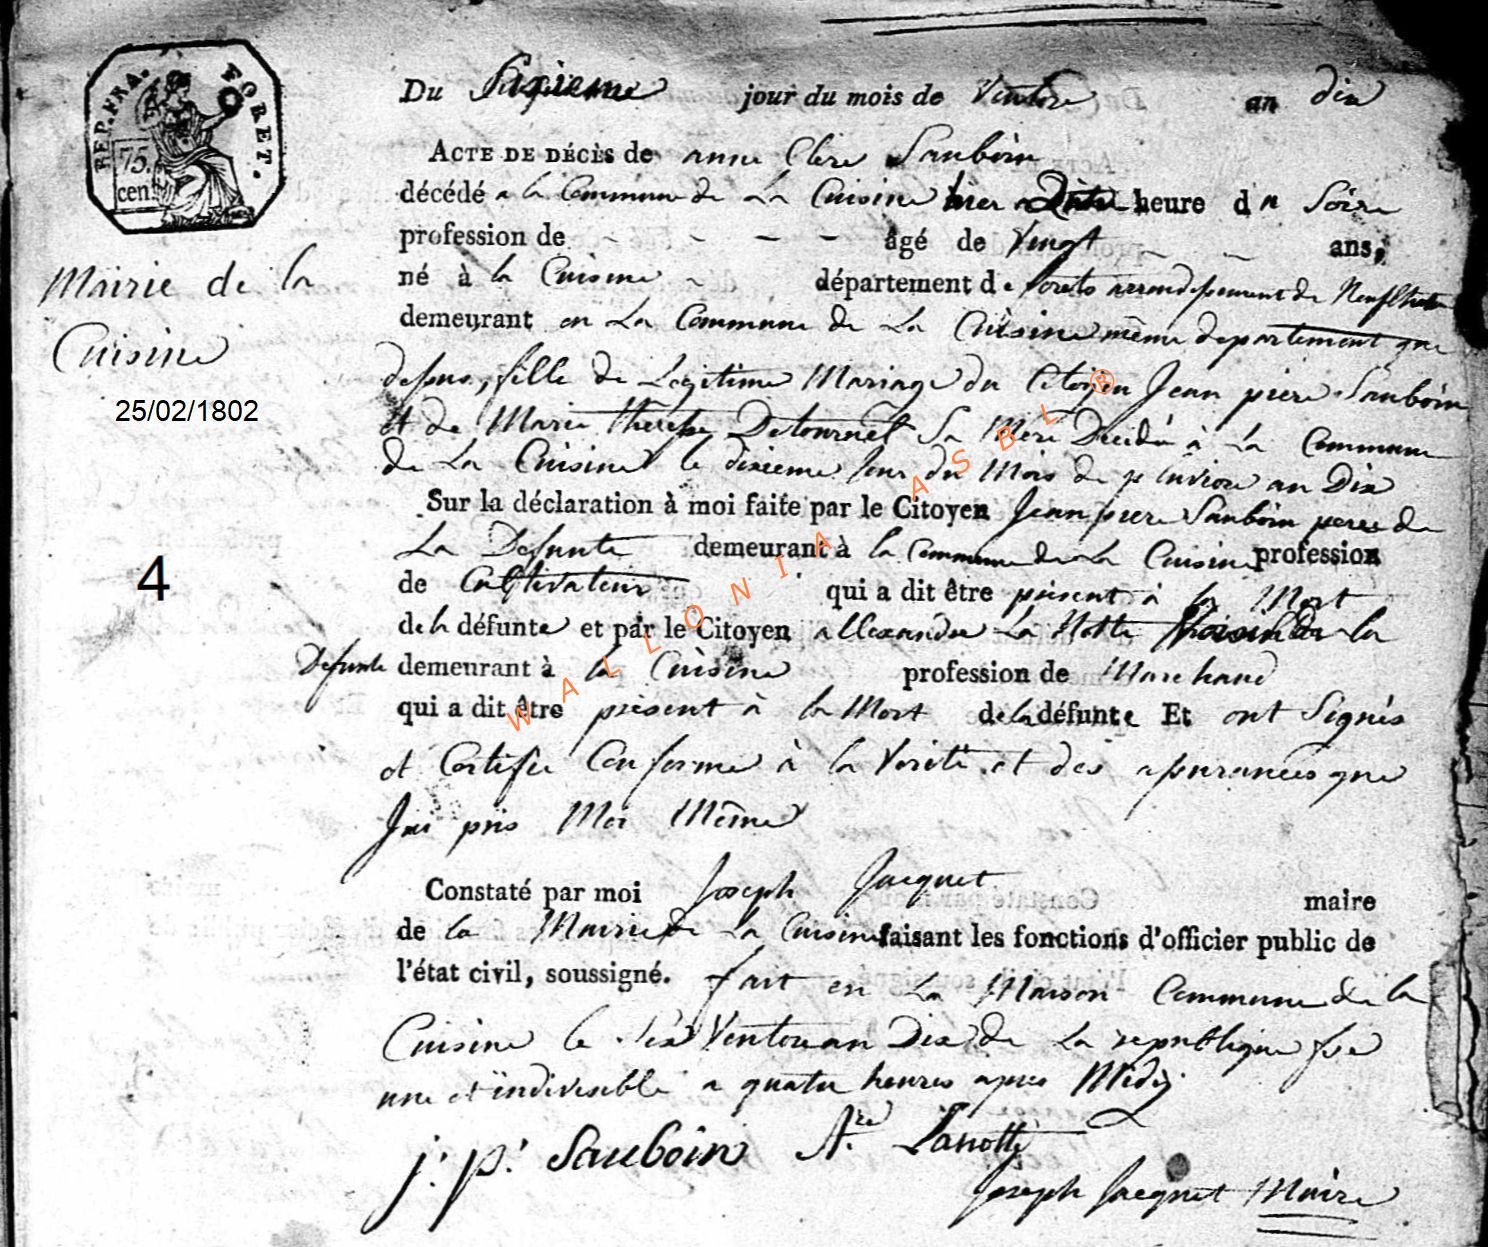 REP. FRA. FORET.
75. cen.
Du Sixieme jour du mois de Ventose an dix
ACTE DE DÉCÈS de anne Clere Sauboin
décédé a la Commune de La Cuisine hier a heure du Soire
profession de - - - - âgé de Vingt - - ans,
né à la Cuisine - département de forets arrondissement de Neufchateau
demeurant en La Commune de La Cuisine même departement que
desus, fille de Legitime Mariage du Citoyen Jean piere Sauboin
et de Marie therese Detournet Sa Mere Decidée à La Commune
de La Cuisine le dixieme Jour du Mois de pluviose an Dix
Sur la déclaration à moi faite par le Citoyen Jean piere Sauboin pere de
La Defunte demeurant à la Commune de La Cuisine profession
de Caltivateur qui a dit être présent à la Mort
de la défunte et par le Citoyen allexandre La Notte de la
Defunte demeurant à la Cuisine profession de Marchand
qui a dit être présent à la Mort de la défunte Et ont Signés
et Certifie Conforme à la Verité et des assurances que
J'ai pris Moi Même
Constaté par moi Joseph Jacquet maire
de la Mairie de La Cuisine faisant les fonctions d'officier public de
l'état civil, soussigné. fait en La Maison Commune de la
Cuisine le Six Ventose an Dix de La republique
une et indivisible a quatre heures apres Midy
j. p. Sauboin Are Lanotte
Joseph Jacquet Maire
Mairie de la
Cuisine
25/02/1802
4
WALLONIA ASBL ®